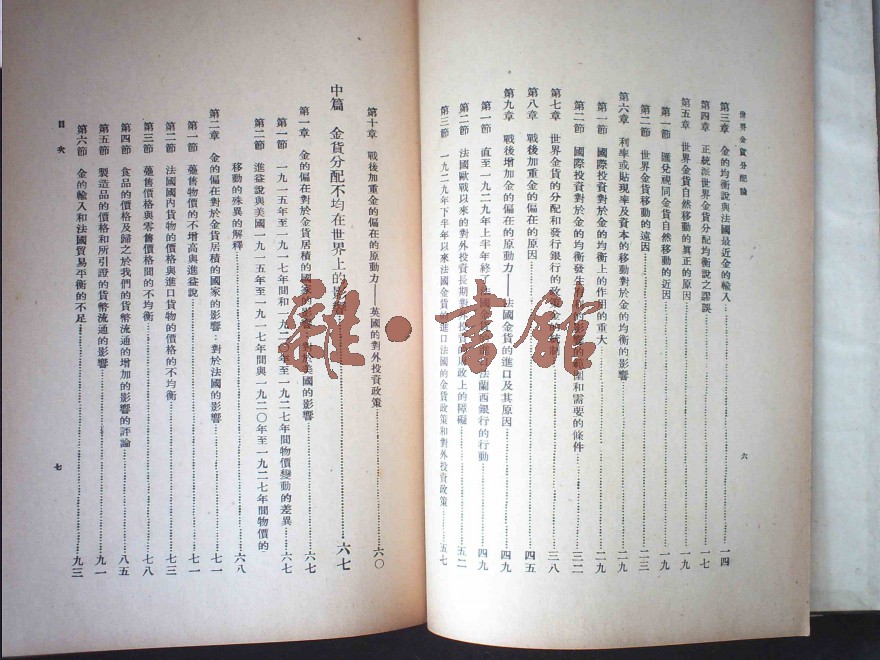 世界金貨分配論
六
第三章　金的均衡說與法國最近金的輸入……一四
第四章　正統派世界金貨分配均衡說之謬誤……一七
第五章　世界金貨自然移動的眞正的原因……一九
第一節　匯兌視同金貨自然移動的近因……一九
第二節　世界金貨移動的遠因……二三
第六章　利率或貼現率及資本的移動對於金的均衡的影響……二九
第一節　國際投資對於金的均衡上的作用的重大……二九
第二節　國際投資對於金的均衡發生有利的影響的範圍和需要的條件……三二
第七章　世界金貨的分配和發行銀行的政策金的統制……三八
第八章　戰後加重金的偏在的原因……四五
第九章　戰後增加金的偏在的原動力——法國金貨的進口及其原因……四九
第一節　直至一九二九年上半年終了法國金貨的進口法蘭西銀行的行動……四九
第二節　法國歐戰以來的對外投資長期對外投資的財政上的障礙……五二
第三節　一九二九年下半年以來法國金貨的進口法國的金貨政策和對外投資政策……五七
第十章　戰後加重金的偏在的原動力——英國的對外投資政策……六〇
中篇　金貨分配不均在世界上的影響……六七
第一章　金的偏在對於金貨居積的國家的影響：對於美國的影響……六七
第一節　一九一五年至一九一七年間和一九二〇年至一九二七年間物價變動的差異……六七
第二節　進益說與美國一九一五年至一九一七年間與一九二〇年至一九二七年間物價的
移動的殊異的解釋……六八
第二章　金的偏在對於金貨居積的國家的影響：對於法國的影響……七一
第一節　躉售物價的不增高與進益說……七一
第二節　法國國內貨物的價格與進口貨物的價格的不均衡……七三
第三節　躉售價格與零售價格間的不均衡……七八
第四節　食品的價格及歸之於我們的貨幣流通的增加的影響的評論……八五
第五節　製造品的價格和所引證的貨幣流通的影響……九一
第六節　金的輸入和法國貿易平衡的不足……九三
目次
七
雜·書館